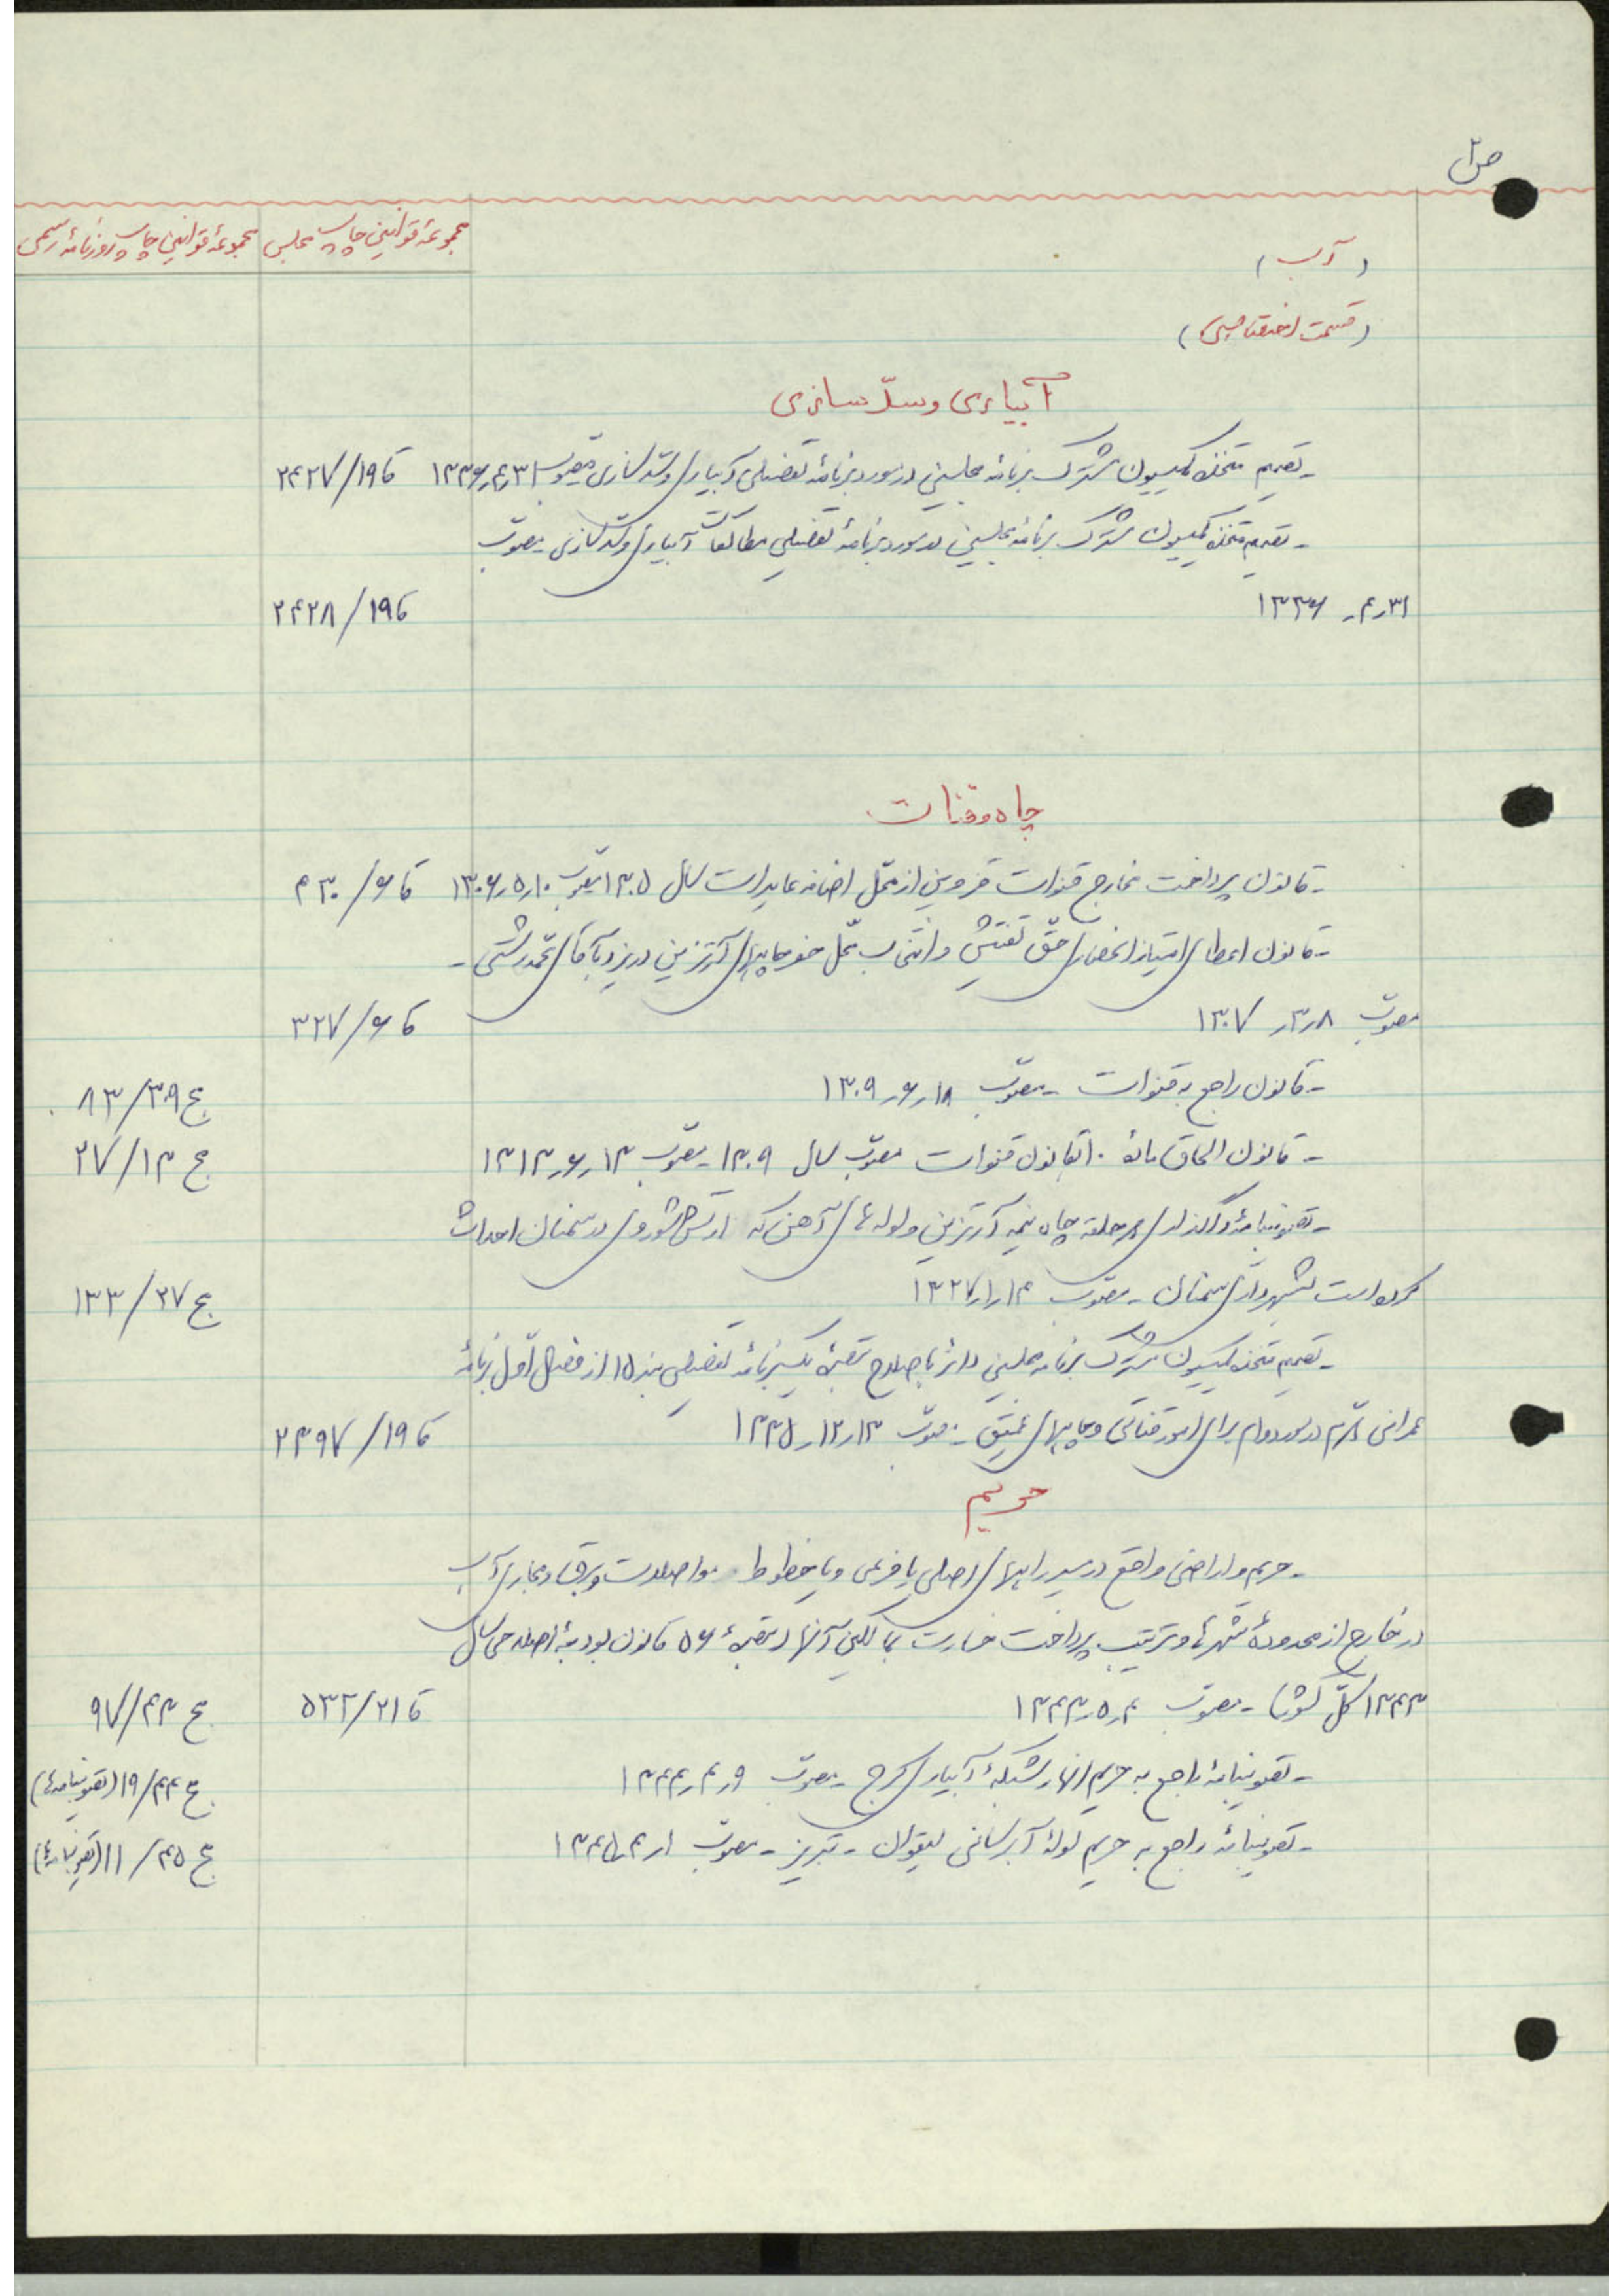 ص ۲
مجموعهٔ قوانین چاپ مجلس مجموعهٔ قوانین چاپ روزنامهٔ رسمی
(آب)
(قسمت اختصاصی)
آبیاری و سدّسازی
- تصمیم متخذه کمیسیون مشترک برنامه مجلسین در مورد برنامهٔ تفصیلی آبیاری و سدسازی مصوب ۳۱ر۴ر۱۳۳۶ قا ۱۹/۲۴۲۷
- تصمیم متخذه کمیسیون مشترک برنامه مجلسین در مورد برنامهٔ تفصیلی مطالعات آبیاری و سدسازی - مصوّب
۳۱ر۴ر۱۳۳۶ قا ۱۹/۲۴۲۸
چاه و قنات
- قانون پرداخت مخارج قنوات قزوین از محّل اضافه عایدات سال ۱۳۰۵ مصوّب ۱۰ر۵ر۱۳۰۶ قا ۶/
- قانون اعطای امتیاز انحصاری حقّ تفتیش و انتخاب محّل حفر چاههای آرتزین در یزد بآقای محمّد رشتی -
مصوّب ۸ر۳ر۱۳۰۷ قا ۶/۳۲۷
- قانون راجع به قنوات - مصوّب ۱۸ر۶ر۱۳۰۹ ج ۳۹/۸۳
- قانون الحاق مادهٔ ۱۰ بقانون قنوات مصوّب سال ۱۳۰۹ - مصوّب ۱۳ر۶ر۱۳۱۳ ج ۱۳/۲۷
- تصویبنامهٔ واگذاری حلقه چاه نیمه آرتزین و لوله های آهنی که ارتش شوروی در سمنان احداث
کرده است بشهرداری سمنان - مصوّب ۱۴ر۱ر۱۳۲۷ ج ۲۷/۱۳۳
- تصمیم متخذه کمیسیون مشترک برنامه مجلسین دائر باصلاح تبصرهٔ یک برنامهٔ تفصیلی بند ۱۵ از فصل اوّل برنامهٔ
عمرانی در مورد وام برای امور قناتی و چاههای عمیق - مصوّب ۱۳ر۱۲ر۱۳۳۵ قا ۱۹/۲۳۹۷
حریم
- حریم و اراضی واقع در مسیر راههای اصلی یا فرعی و یا خطوط مواصلات و برق و مجاری آب
در خارج از محدودهٔ شهرها و ترتیب پرداخت خسارت بمالکین آنها (تبصرهٔ ۵۶ قانون بودجهٔ اصلاحی سال
۱۳۴۳ کلّ کشور) - مصوّب ۴ر۵ر۱۳۴۳ قا ۲۱/۵۳۲ ج ۴۳/۹۷
- تصویبنامهٔ راجع به حریم انهار شبکهٔ آبیاری کرج - مصوّب ۹ر۴ر۱۳۴۴ ج ۴۴/۱۹ (تصویبنامه‌ها)
- تصویبنامهٔ راجع به حریم لولهٔ آبرسانی لیقوان - تبریز - مصوّب ۱ر۴ر۱۳۴۵ ج ۴۵/۱۱ (تصویبنامه‌ها)